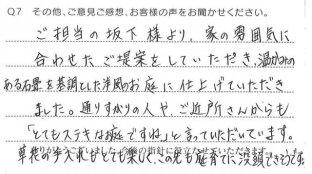 Q7 その他、ご意見ご感想、お客様の声をお聞かせください。
ご担当の坂下様より、家の雰囲気に
合わせたご提案をしていただき、温かみの
ある石畳を基調とした洋風のお庭に仕上げていただき
ました。通りすがりの人や、ご近所さんからも
「とてもステキな庭ですね」と言っていただいています。
草花の手入れもとても楽しく、この先も庭育てに没頭できそうです。